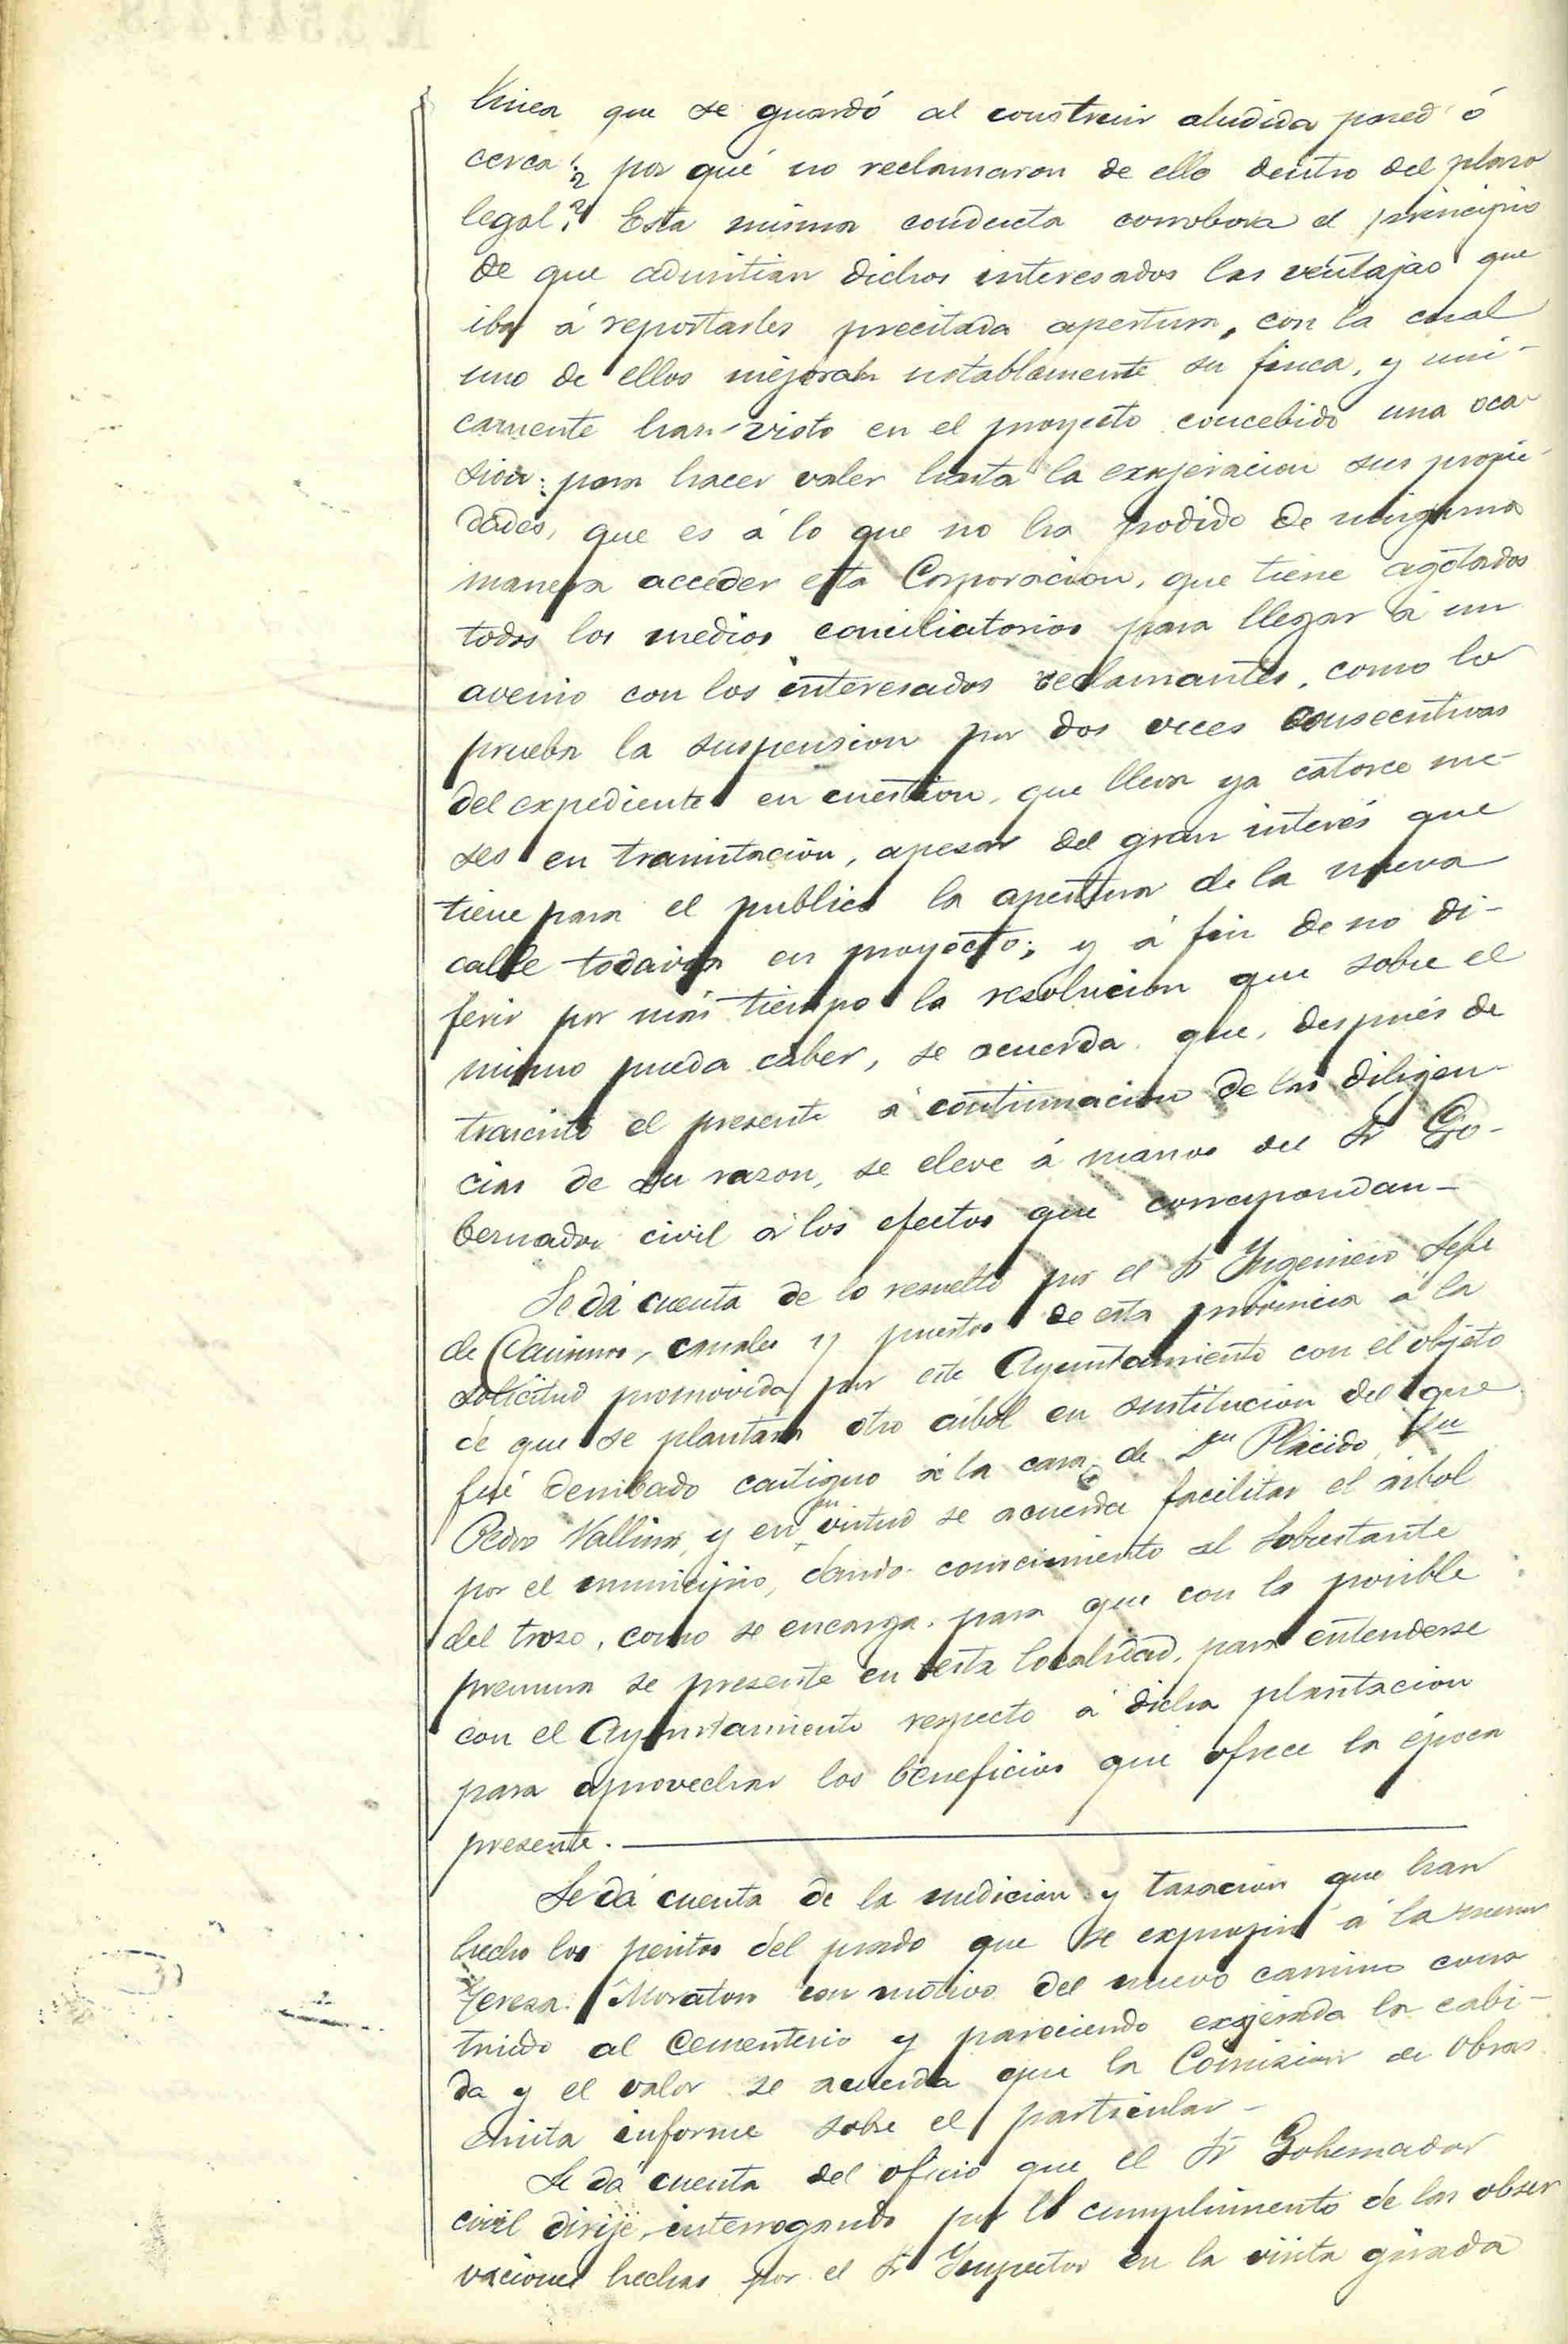 linea que se guardó al construir aludida pared ó
cerca ¿por qué no reclamaron de ello dentro del plazo
legal? Esta misma conducta corrobora el principio
de que admitian dichos interesados las ventajas que
iba á reportarles precitada apertura, con la cual
uno de ellos mejoraba notablemente su finca, y uni-
camente han visto en el proyecto concebido una oca-
sion para hacer valer hasta la exajeracion sus propie-
dades, que es á lo que no ha podido de ninguna
manera acceder esta Corporacion, que tiene agotados
todos los medios conciliatorios para llegar á un
avenio con los interesados reclamantes, como lo
prueba la suspension por dos veces consecutivas
del expediente en cuestion, que lleva ya catorce me-
ses en tramitación, apesar del gran interés que
tiene para el publico la apertura de la nueva
calle todavia en proyecto; y á fin de no di-
ferir por más tiempo la resolucion que sobre el
mismo pueda caber, se acuerda que, después de
trascrito el presente á continuacion de las diligen-
cias de su razon, se eleve á manos del Sr Go-
bernador civil á los efectos que correspondan-
Se dá cuenta de lo resuelto por el Sr Ingeniero Jefe
de Caminos, canales y puertos de esta provincia á la
solicitud promovida por este Ayuntamiento con el objeto
de que se plantara otro árbol en sustitucion del que
fué derribado contiguo á la casa de Dn Plácido
Pedro Vallina, y en su virtud se acuerda facilitar el árbol
por el municipio, dando conocimiento al Sobrestante
del trozo, como se encarga, para que con la posible
premura se presente en esta localidad, para entenderse
con el Ayuntamiento respecto á dicha plantacion
para aprovechar los beneficios que ofrece la época
presente.
Se dá cuenta de la medicion y tasacion que han
hecho los peritos del prado que se expropió á la menor
Teresa Moraton con motivo del nuevo camino cons
truido al Cementerio y pareciendo exajerada la cabi-
da y el valor se acuerda que la Comision de Obras
emita informe sobre el particular-
Se dá cuenta del oficio que el Sr Gobernador
civil dirije, interrogando por el cumplimento de las obser
vaciones hechas por el Sr Inspector en la visita girada